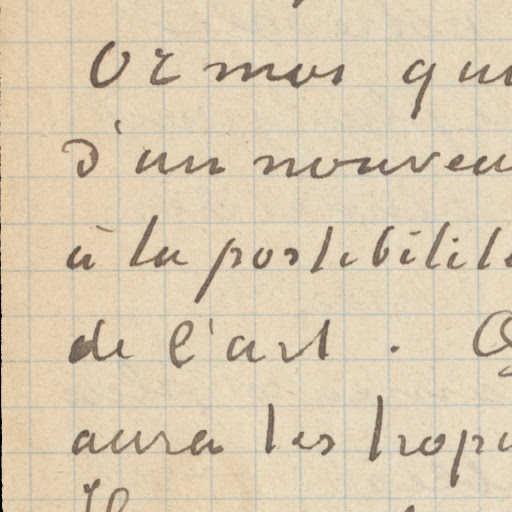 Or moi qui
d'un nouveau
à la possibilité
de l'art.
aura les tropi